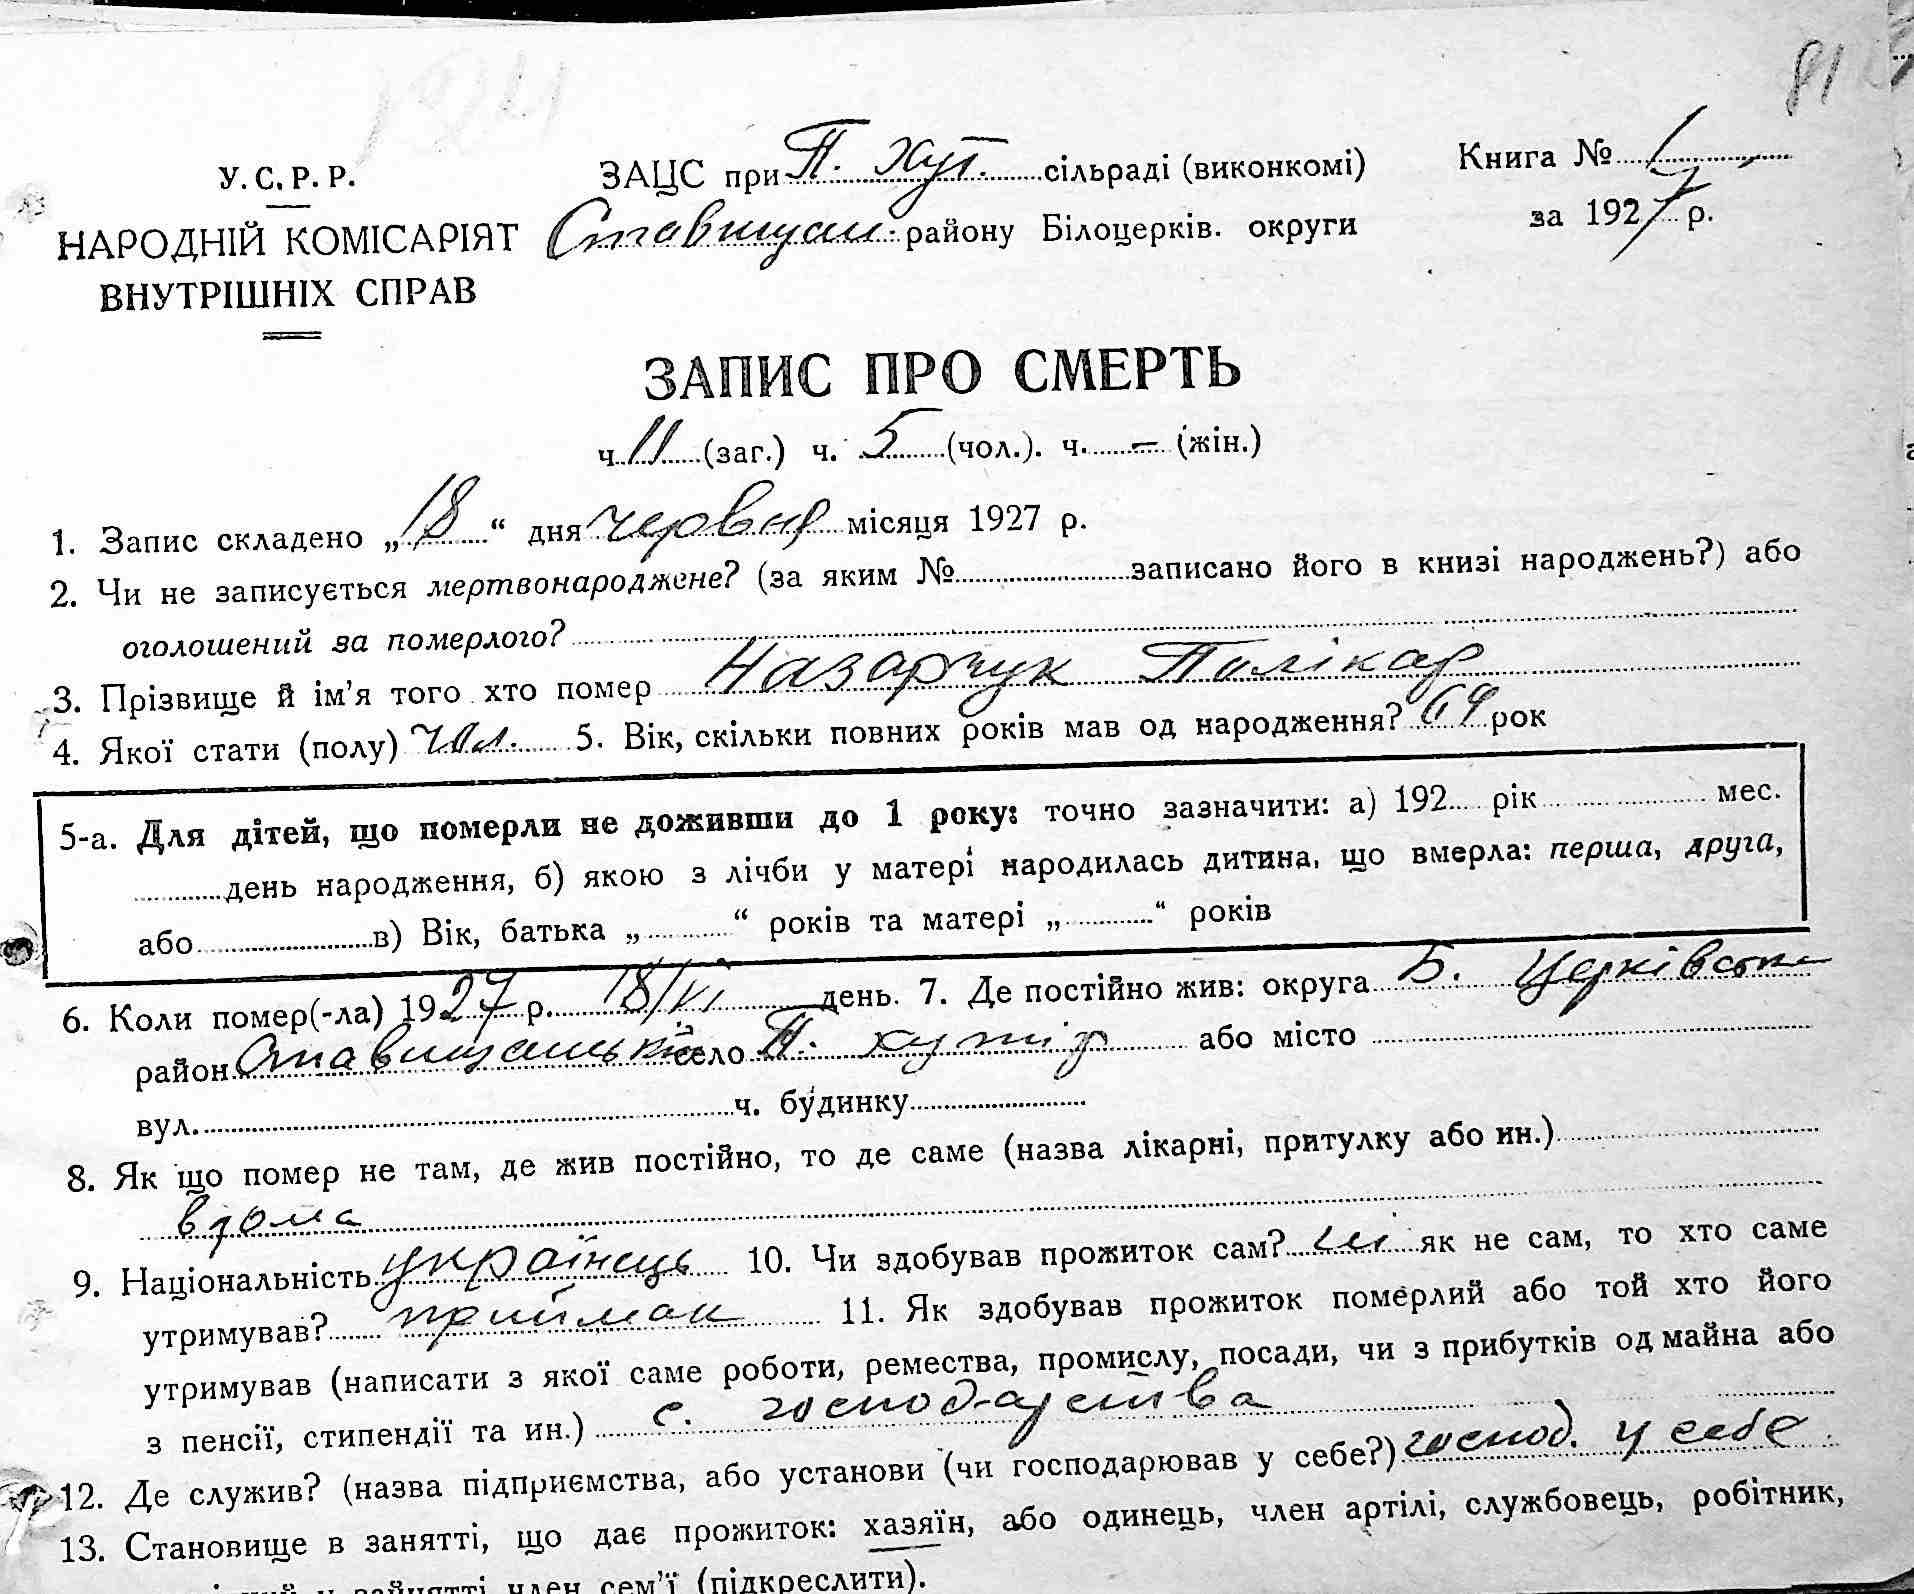 81
У.С.Р.Р.
НАРОДНІЙ КОМІСАРІЯТ
ВНУТРІШНІХ СПРАВ
ЗАЦС при П. Хут. сільраді (виконкомі)
Ставищан. району Білоцерків. округи
Книга № 1
за 1927 р.
ЗАПИС ПРО СМЕРТЬ
ч. 11 (заг.) ч. 5 (чол.). ч. – (жін.)
1. Запис складено „18“ дня червня місяця 1927 р.
2. Чи не записується мертвонароджене? (за яким № записано його в книзі народжень?) або
оголошений за померлого?
3. Прізвище й ім’я того хто помер Назарчук Полікар
4. Якої стати (полу) чол. 5. Вік, скільки повних років мав од народження? 69 рок
5-а. Для дітей, що померли не доживши до 1 року: точно зазначити: а) 192 рік мес.
день народження, б) якою з лічби у матері народилась дитина, що вмерла: перша, друга,
або в) Вік, батька „ “ років та матері „ “ років
6. Коли помер(-ла) 1927 р. 18/VI день. 7. Де постійно жив: округа Б. Церківська
район Ставищанський село П. хутір або місто
вул. ч. будинку
8. Як що помер не там, де жив постійно, то де саме (назва лікарні, притулку або ин.)
вдома
9. Національність українець 10. Чи здобував прожиток сам? ні як не сам, то хто саме
утримував? приймак 11. Як здобував прожиток померлий або той хто його
утримував (написати з якої саме роботи, ремества, промислу, посади, чи з прибутків од майна або
з пенсії, стипендії та ин.) с. господарства
12. Де служив? (назва підприємства, або установи (чи господарював у себе?) господ. у себе
13. Становище в занятті, що дає прожиток: хазяїн, або одинець, член артілі, службовець, робітник,
у зайнятті член сем’ї (підкреслити).